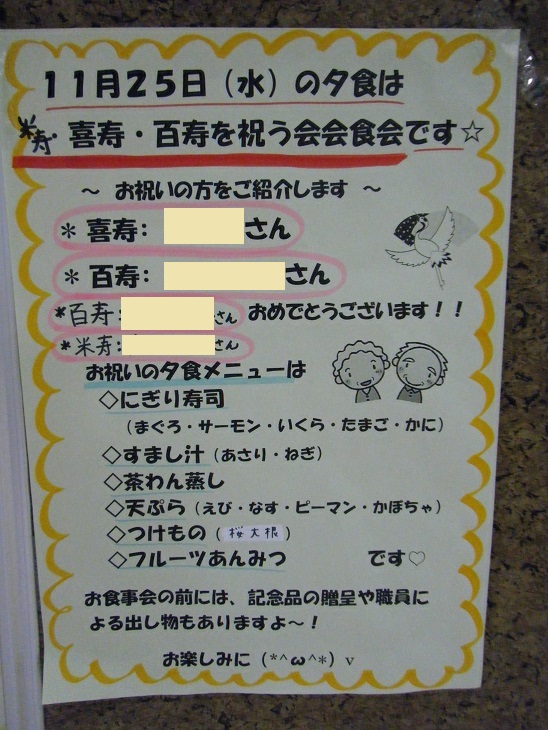 11月25日(水)の夕食は
米寿・喜寿・百寿を祝う会会食会です☆
～ お祝いの方をご紹介します ～
＊ 喜寿： さん
＊ 百寿： さん
＊百寿： さん おめでとうございます！！
＊米寿： さん
お祝いの夕食メニューは
◇にぎり寿司
(まぐろ・サーモン・いくら・たまご・かに)
◇すまし汁(あさり・ねぎ)
◇茶わん蒸し
◇天ぷら(えび・なす・ピーマン・かぼちゃ)
◇つけもの(桜大根)
◇フルーツあんみつ です♡
お食事会の前には、記念品の贈呈や職員に
よる出し物もありますよ～！
お楽しみに (*^ω^*) v